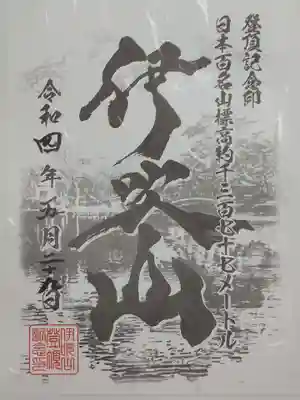 登頂記念印
日本百名山標高約千三百七十七メートル
伊吹山
令和四年五月二十九日